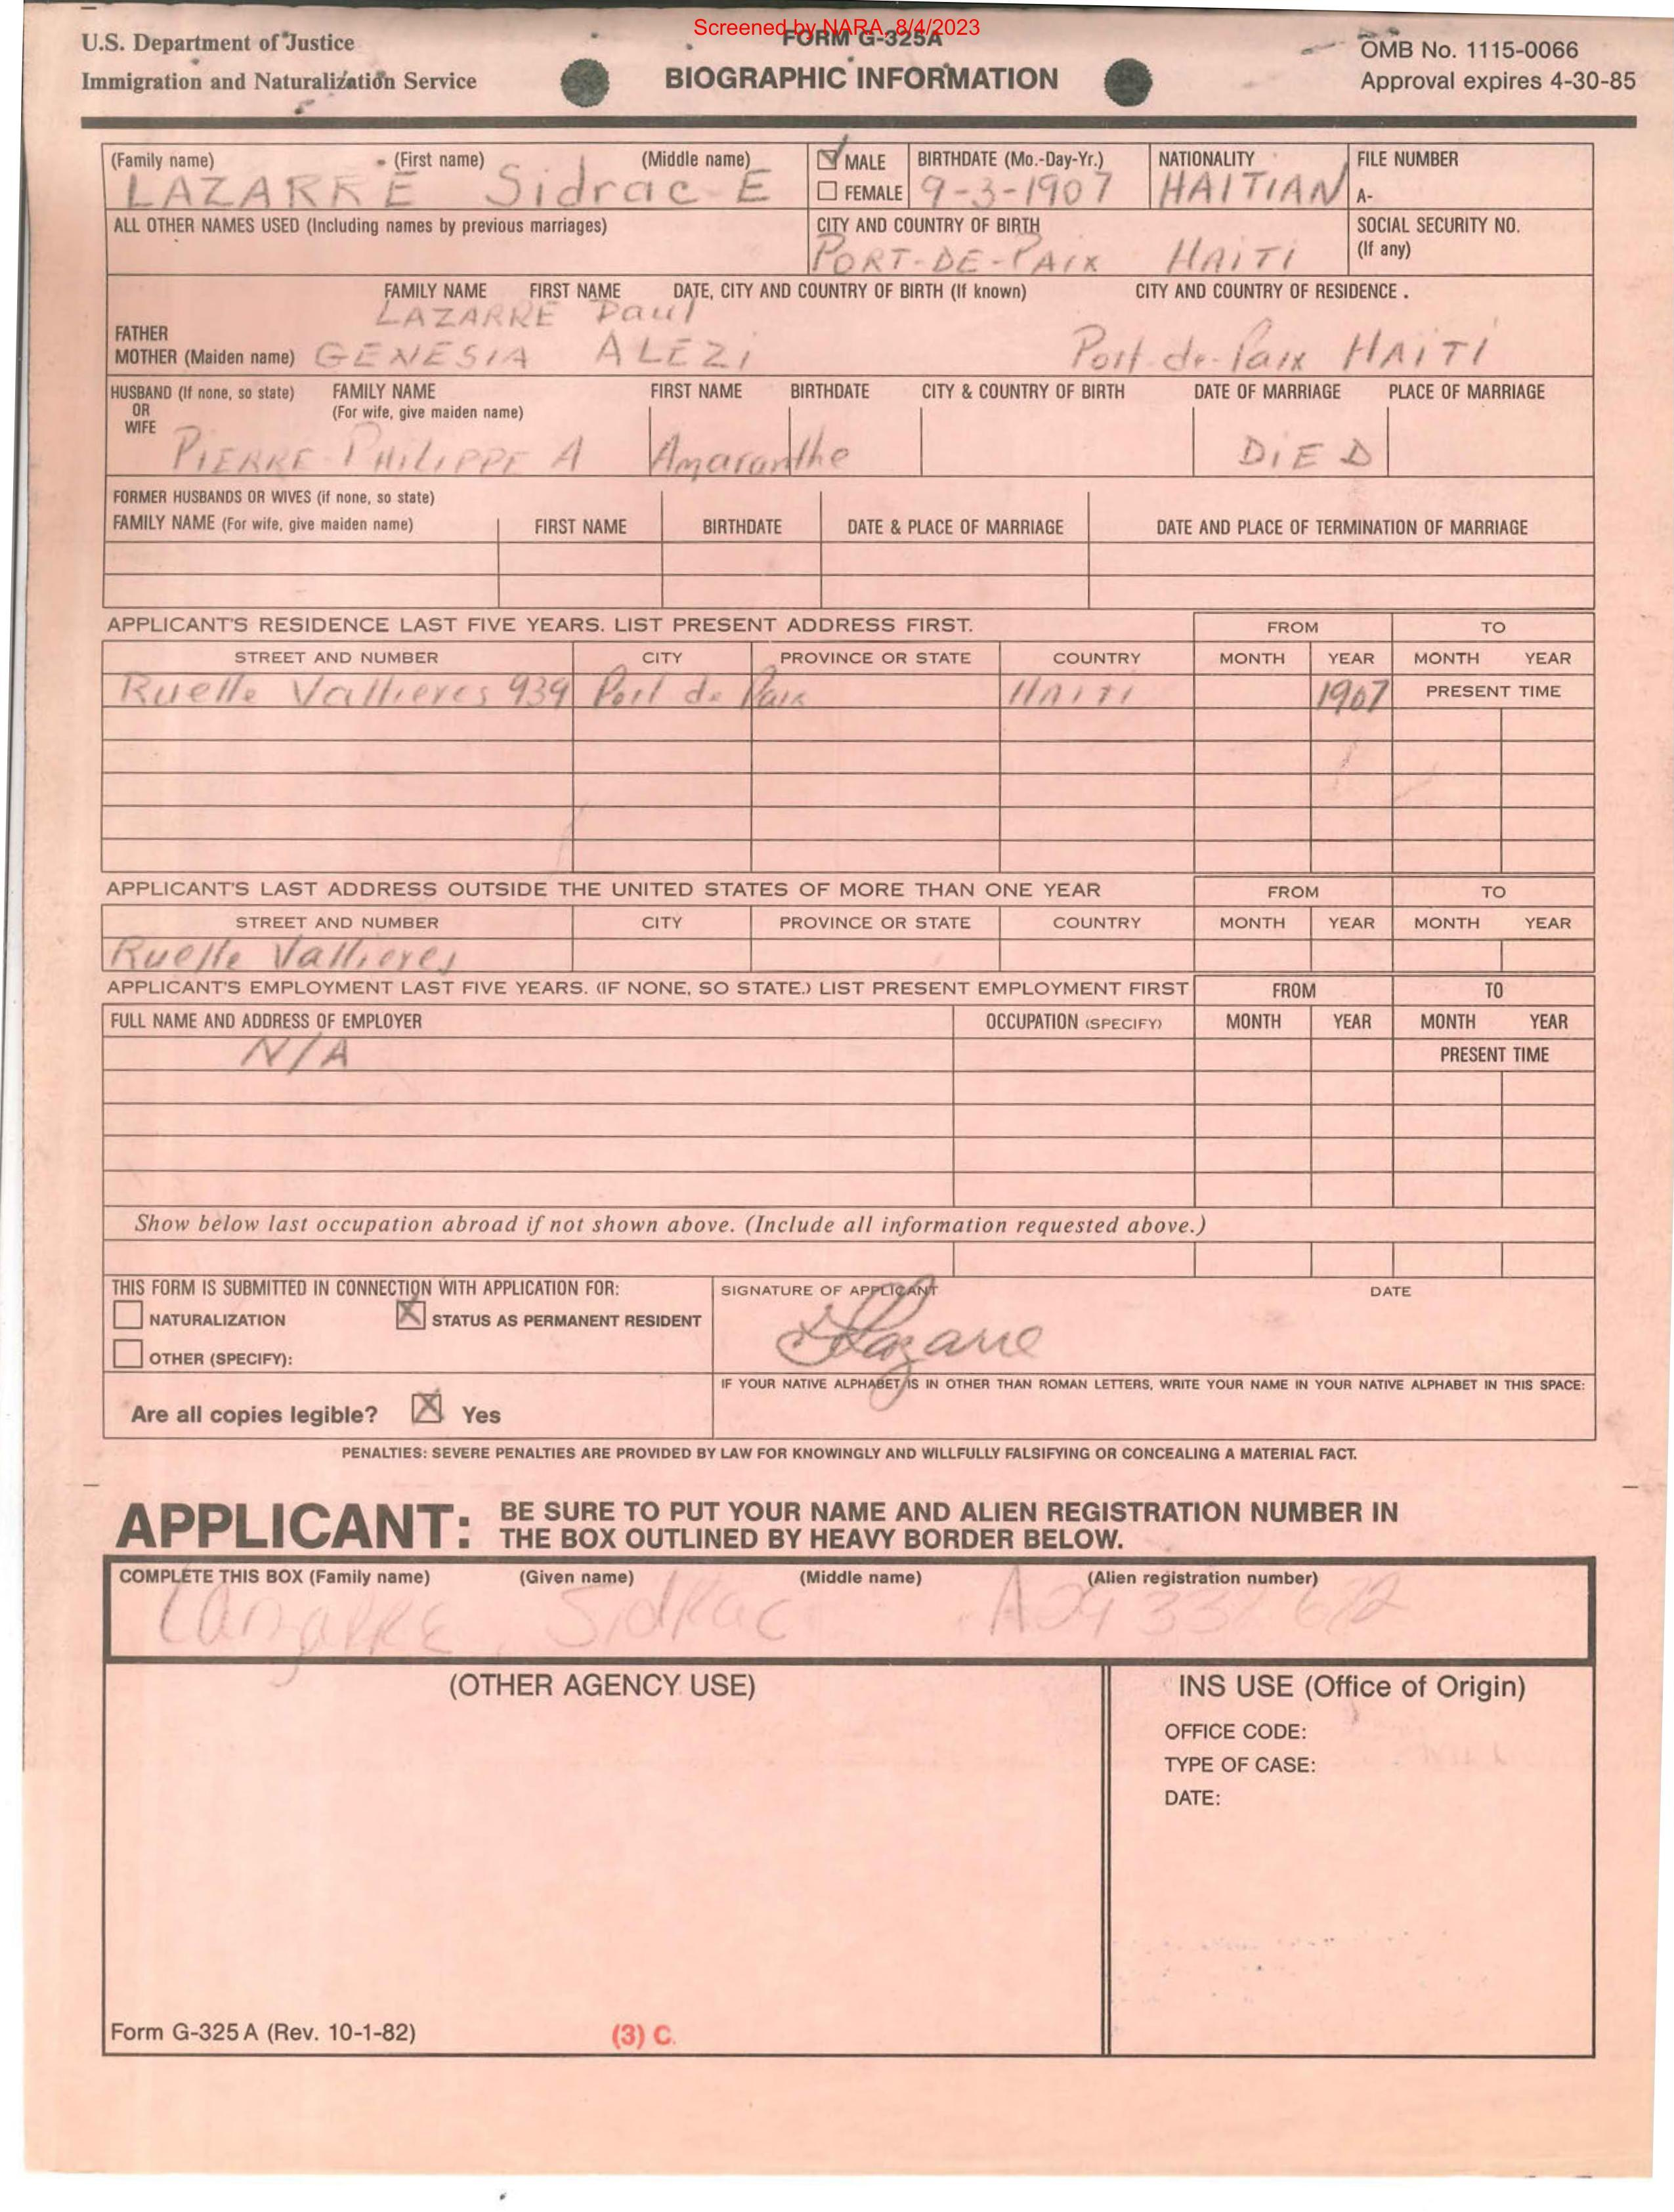 Screened by NARA, 8/4/2023
U.S. Department of Justice
Immigration and Naturalization Service
FORM G-325A
BIOGRAPHIC INFORMATION
OMB No. 1115-0066
Approval expires 4-30-85
(Family name) (First name) (Middle name)
LAZARRE Sidrac E
MALE
FEMALE
BIRTHDATE (Mo.-Day-Yr.)
9-3-1907
NATIONALITY
HAITIAN
FILE NUMBER
A-
ALL OTHER NAMES USED (Including names by previous marriages)
CITY AND COUNTRY OF BIRTH
PORT-DE-PAIX HAITI
SOCIAL SECURITY NO.
(If any)
FAMILY NAME FIRST NAME DATE, CITY AND COUNTRY OF BIRTH (If known) CITY AND COUNTRY OF RESIDENCE .
FATHER LAZARRE Paul
MOTHER (Maiden name) GENESIA ALEZI Port-de-Paix HAITI
HUSBAND (If none, so state) FAMILY NAME FIRST NAME BIRTHDATE CITY & COUNTRY OF BIRTH DATE OF MARRIAGE PLACE OF MARRIAGE
OR (For wife, give maiden name)
WIFE
PIERRE-PHILIPPE A Amaranthe DiED
FORMER HUSBANDS OR WIVES (if none, so state)
FAMILY NAME (For wife, give maiden name) FIRST NAME BIRTHDATE DATE & PLACE OF MARRIAGE DATE AND PLACE OF TERMINATION OF MARRIAGE
APPLICANT'S RESIDENCE LAST FIVE YEARS. LIST PRESENT ADDRESS FIRST. FROM TO
STREET AND NUMBER CITY PROVINCE OR STATE COUNTRY MONTH YEAR MONTH YEAR
Ruelle Vallieres 939 Port de Paix HAITI 1907 PRESENT TIME
APPLICANT'S LAST ADDRESS OUTSIDE THE UNITED STATES OF MORE THAN ONE YEAR FROM TO
STREET AND NUMBER CITY PROVINCE OR STATE COUNTRY MONTH YEAR MONTH YEAR
Ruelle Vallieres
APPLICANT'S EMPLOYMENT LAST FIVE YEARS. (IF NONE, SO STATE.) LIST PRESENT EMPLOYMENT FIRST FROM TO
FULL NAME AND ADDRESS OF EMPLOYER OCCUPATION (SPECIFY) MONTH YEAR MONTH YEAR
N/A PRESENT TIME
Show below last occupation abroad if not shown above. (Include all information requested above.)
THIS FORM IS SUBMITTED IN CONNECTION WITH APPLICATION FOR:
NATURALIZATION STATUS AS PERMANENT RESIDENT
OTHER (SPECIFY):
Are all copies legible? Yes
SIGNATURE OF APPLICANT DATE
Lazarre
IF YOUR NATIVE ALPHABET IS IN OTHER THAN ROMAN LETTERS, WRITE YOUR NAME IN YOUR NATIVE ALPHABET IN THIS SPACE:
PENALTIES: SEVERE PENALTIES ARE PROVIDED BY LAW FOR KNOWINGLY AND WILLFULLY FALSIFYING OR CONCEALING A MATERIAL FACT.
APPLICANT: BE SURE TO PUT YOUR NAME AND ALIEN REGISTRATION NUMBER IN
THE BOX OUTLINED BY HEAVY BORDER BELOW.
COMPLETE THIS BOX (Family name) (Given name) (Middle name) (Alien registration number)
LazaRRE Sidrac
(OTHER AGENCY USE)
INS USE (Office of Origin)
OFFICE CODE:
TYPE OF CASE:
DATE:
Form G-325 A (Rev. 10-1-82)
(3) C.